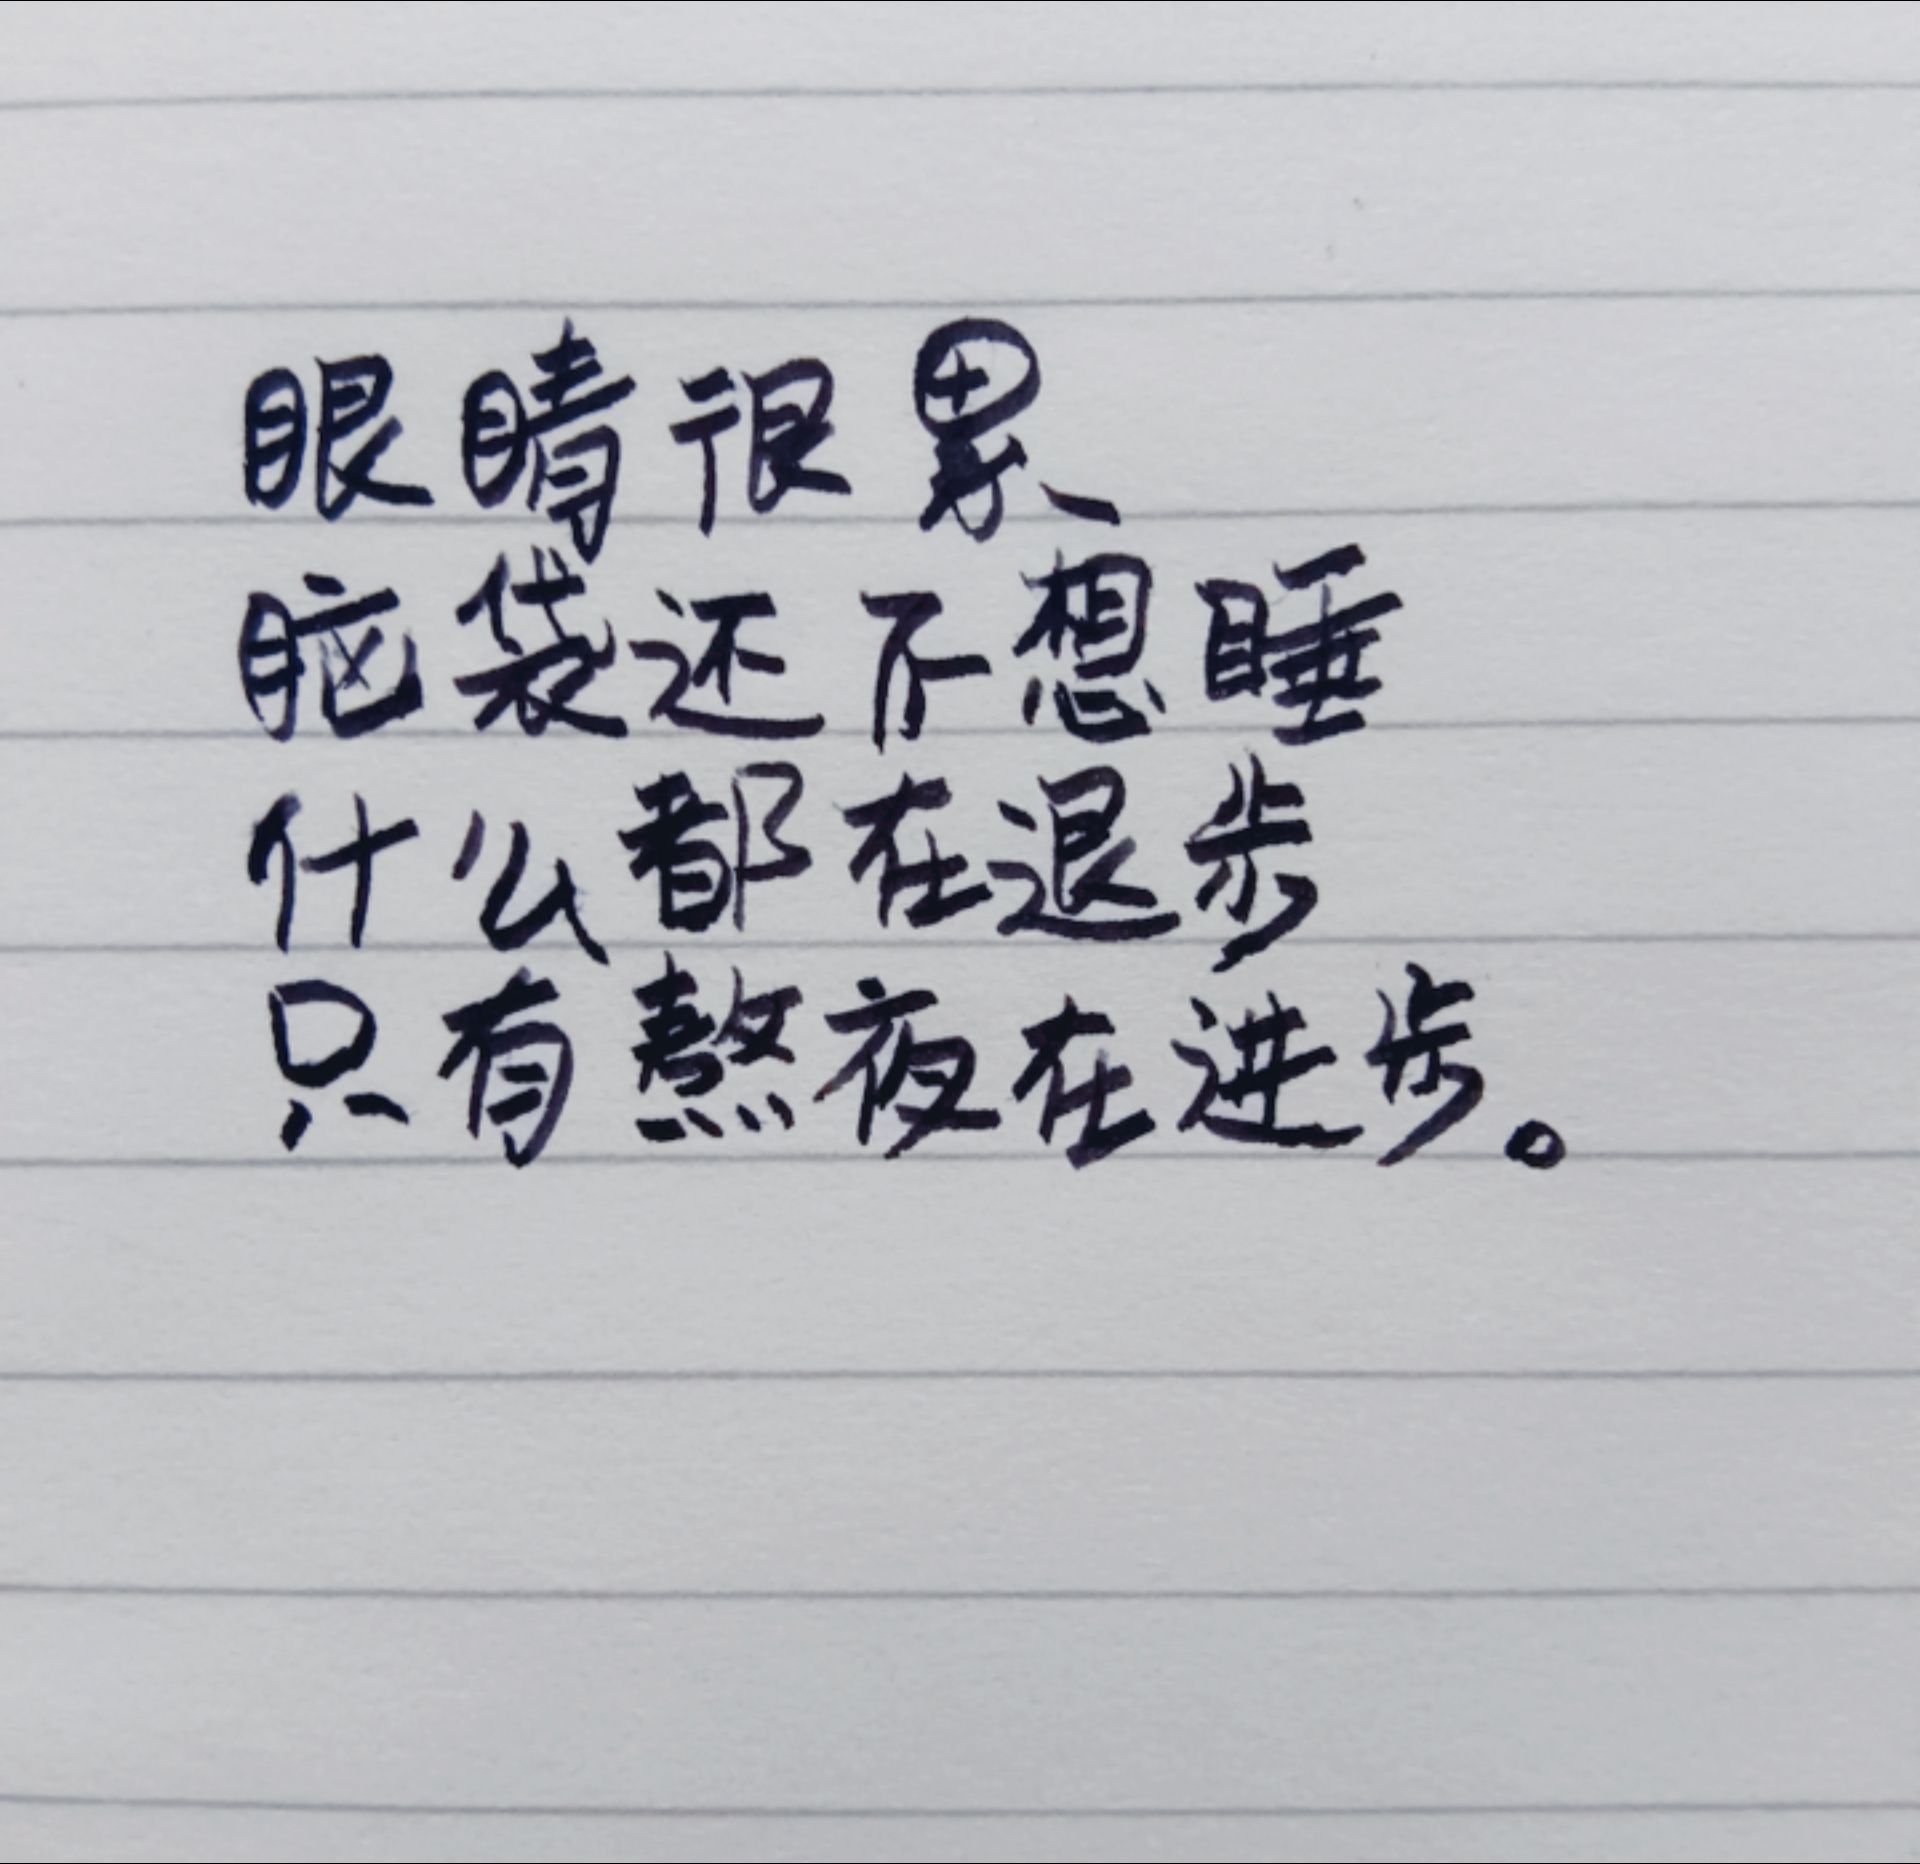 眼睛很累
脑袋还不想睡
什么都在退步
只有熬夜在进步。